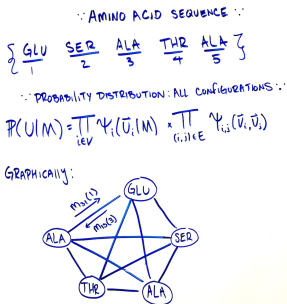 ∵ AMINO ACID SEQUENCE ∵
{ GLU SER ALA THR ALA }
1 2 3 4 5
∵ PROBABILITY DISTRIBUTION: ALL CONFIGURATIONS ∵
P(U|M) = ∏ Ψi(Ūi|M) * ∏ Ψi,j(Ūi,Ūj)
i∈V (i,j)∈E
GRAPHICALLY:
GLU
ALA
SER
THR
ALA